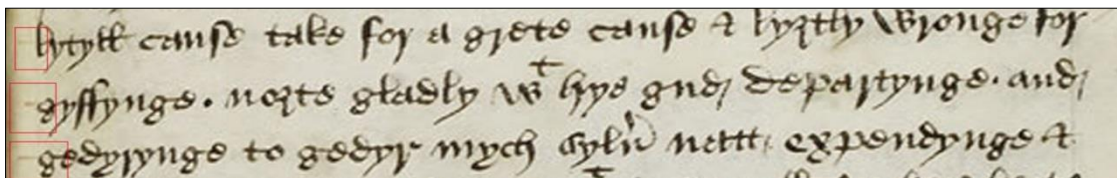 lytyll cause take for a grete cause & lyztly wronge for
gyffynge. nozte gladly wt hys gud departynge. and
gedyrynge to gedyr mych expendynge &